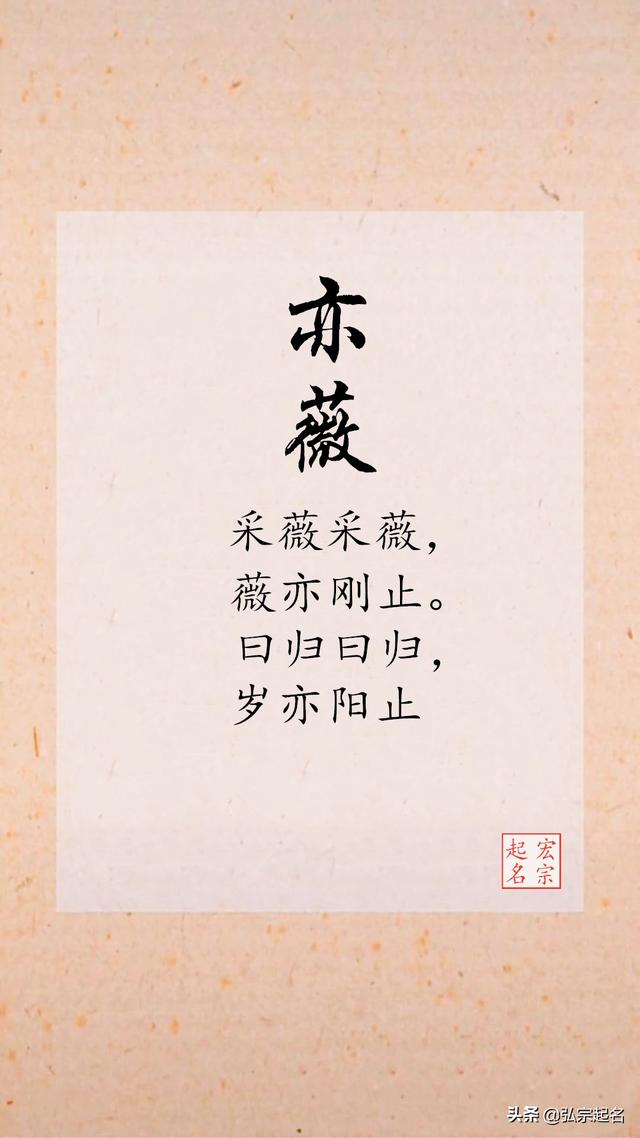 亦
薇
采薇采薇，
薇亦刚止。
曰归曰归，
岁亦阳止
宏宗
起名
头条 @弘宗起名